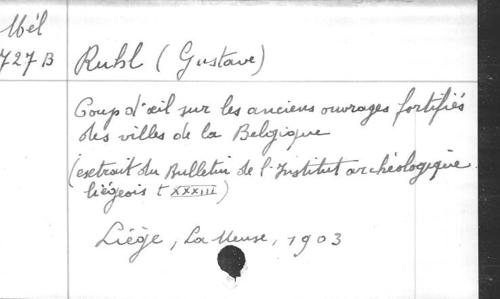 Mél
727 B
Ruhl (Gustave)
Coup d'œil sur les anciens ouvrages fortifiés
des villes de la Belgique
(extrait du Bulletin de l'Institut archéologique
liégeois t XXXIII)
Liège, La Meuse, 1903